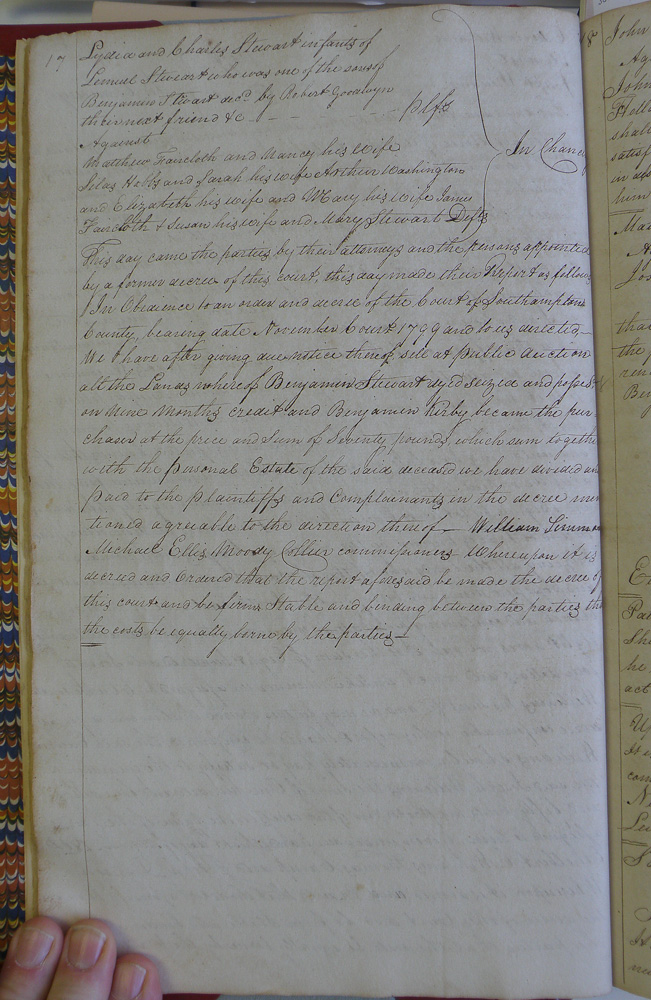 17 Lydia and Charles Stewart infants of
Lemuel Stewart who was one of the sons of
Benjamin Stewart decd. by Robert Goodwyn
their next friend &c - - - - plfs
Against
Matthew Faircloth and Nancy his Wife
Silas Hobbs and Sarah his wife Arthur Washington
and Elizabeth his wife and Mary his Wife James
Faircloth & Susan his wife and Mary Stewart Defts
In Chancy
This day came the parties by their attorneys and the persons appointed
by a former decree of this court, this day made their Report as follows
In Obedience to an order and decree of the Court of Southampton
County, bearing date November Court 1799 and to us directed,-
We have after giving due notice thereof sold at Public Auction
all the Lands whereof Benjamin Stewart dyed seized and possess-
on Nine Months credit and Benjamin Kirby became the pur-
chaser at the price and Sum of Seventy pounds, which sum together
with the personal Estate of the said deceased we have divided an
paid to the plaintiffs and Complainants in the decree men
tioned agreeable to the direction thereof - William Simmo
Michael Ellis Moody Collier commissioners - Whereupon it is
decreed and Ordered that the report aforesaid be made the decree of
this court and be firm Stable and binding between the parties th
the costs be equally born by the parties -
18
John
Ag
John
shall
satisf
him
that
the
Ben
She
he
act
Up
com